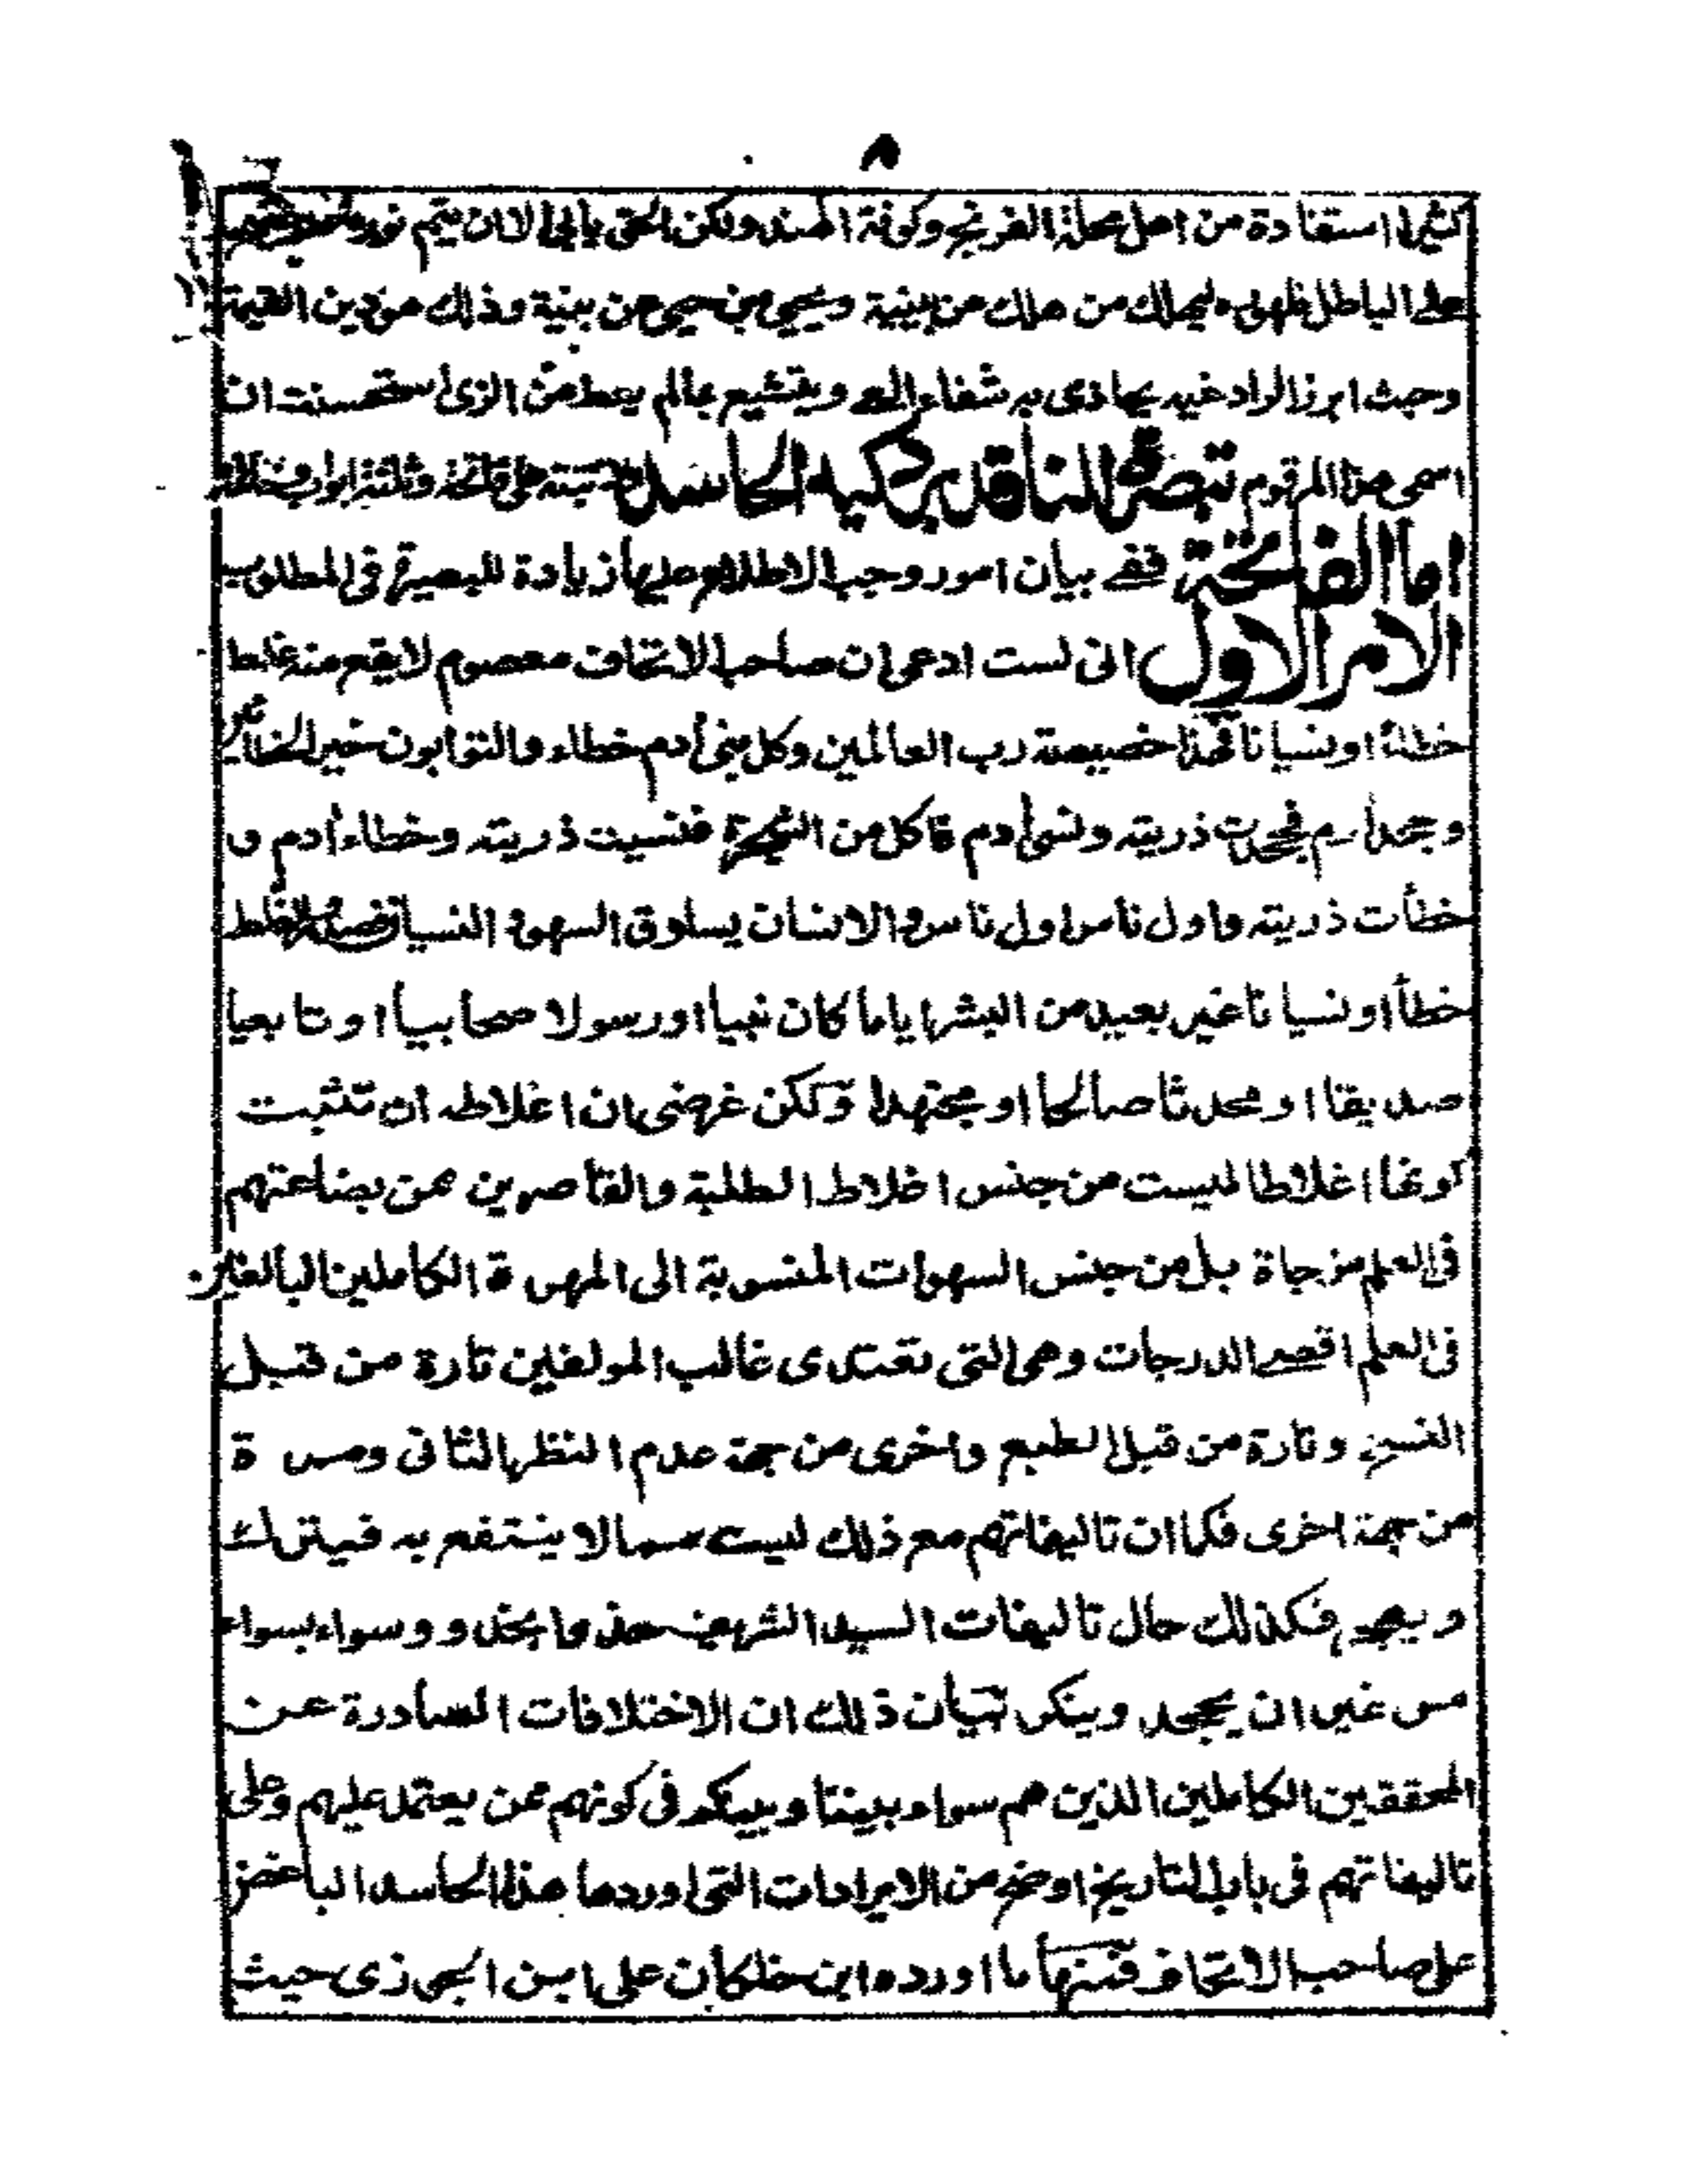 ٨
كثيرا استفادة من اهل محلة الفرنج وكوفة الهند ولكن الحق يأبى الا ان يتم نوره
على الباطل ليهلك من هلك عن بينة ويحيى من حيى عن بينة وذلك من دين القيمة
وحيث ابرز الراد غيه بما ذى به شفاء العى ويتشبع بما لم يعط من الزى استحسنت ان
اسمى هذا المرقوم تبصرة الناقد برد كيد الحاسد ورتبته على فاتحة وثلثة ابواب وخاتمة
اما الفاتحة ففى بيان امور وجب الاطلاع عليها زيادة للبصيرة فى المطلوب
الامر الاول انى لست ادعى ان صاحب الاتحاف معصوم لا يقع منه غلط
خطأ او نسيانا فهذا خصيصة رب العالمين وكل بنى أدم خطاء والتوابون خير الخطائين
وجحد أدم فجحدت ذريته ونسى أدم فاكل من الشجرة فنسيت ذريته وخطاء أدم و
خطأت ذريته واول ناس اول ناس والانسان يساوق السهو و النسيان فصدور الغلط
خطأ او نسيانا غير بعيد من البشر اياما كان نبيا او رسولا صحابيا او تابعيا
صديقا او محدثا صالحا او مجتهدا ولكن غرضى ان اغلاطه ان تثبت
كونها اغلاطا ليست من جنس اغلاط الطلبة والقاصرين ممن بضاعتهم
فى العلم مزجاة بل من جنس السهوات المنسوبة الى المهرة الكاملين البالغين
فى العلم اقصى الدرجات وهى التى تعتدى غالب المولفين تارة من قبل
النسخ وتارة من قبل الطبع واخرى من جهة عدم النظر الثانى ومرة
من جهة اخرى فكما ان تاليفاتهم مع ذلك ليست مما لا ينتفع به فيترك
ويهجر فكذلك حال تاليفات السيد الشريف حذو ما بحذو وسواء بسواء
من غير ان يجحد وينكر تبيان ذلك ان الاختلافات الصادرة عن
المحققين الكاملين الذين هم سواء بيننا وبينكم فى كونهم ممن يعتمد عليهم وعلى
تاليفاتهم فى باب التاريخ اوضح من الايرادات التى اوردها هذا الحاسد الباغض
على صاحب الاتحاف فمنها ما اورده ابن خلكان على ابن الجوزى حيث